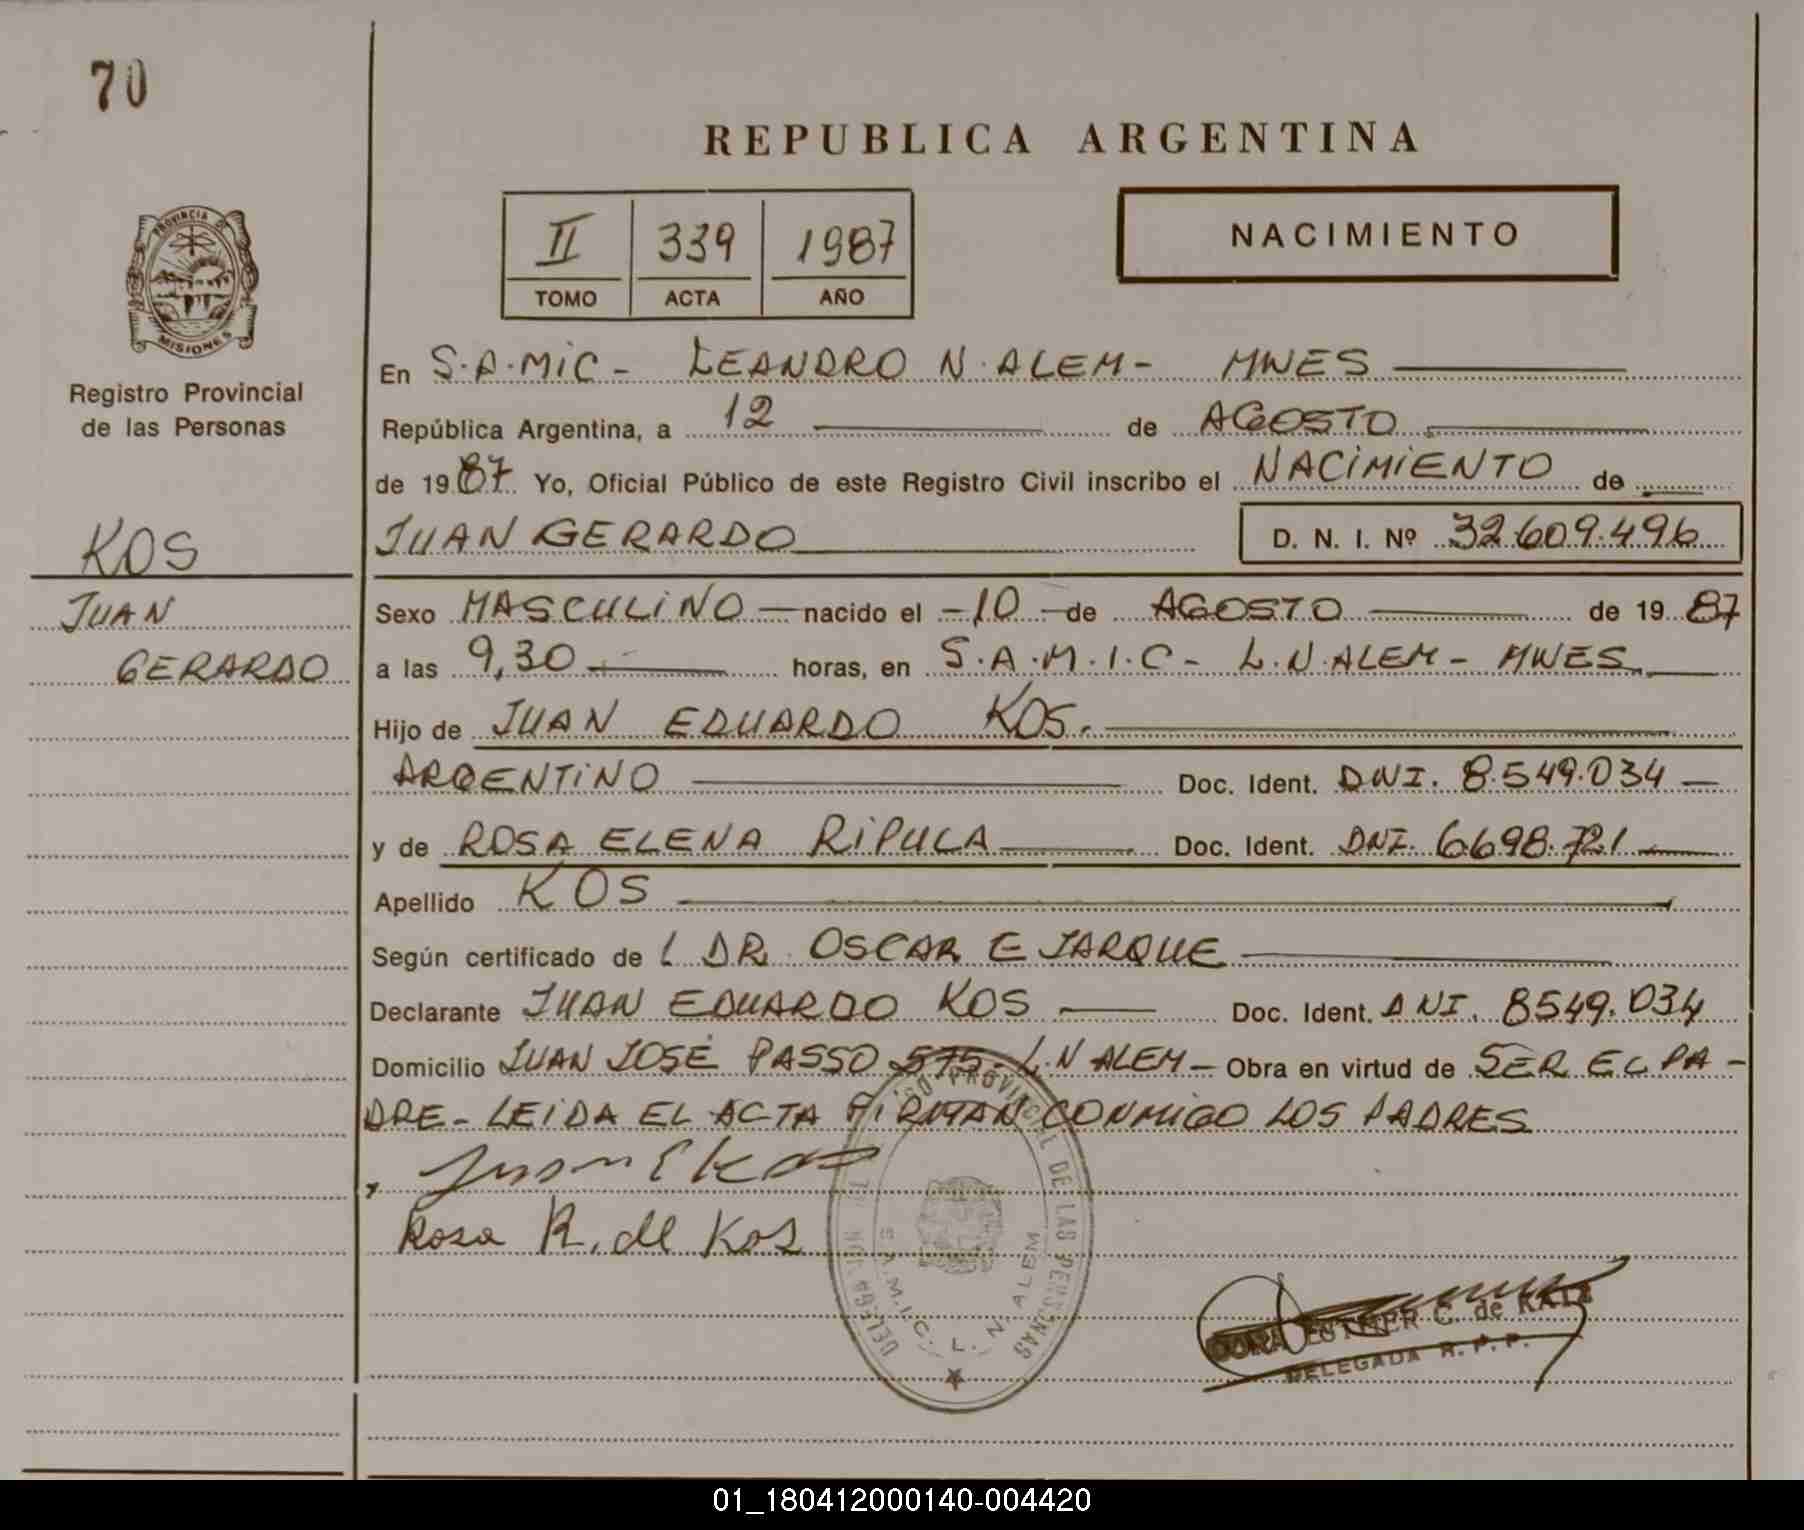 70
REPUBLICA ARGENTINA
II 339 1987
TOMO ACTA AÑO
NACIMIENTO
PROVINCIA D
MISIONES
Registro Provincial
de las Personas
KOS
JUAN
GERARDO
En S.A.MiC - LEANDRO N. ALEM - MNES
República Argentina, a 12 de AGOSTO
de 1987 Yo, Oficial Público de este Registro Civil inscribo el NACiMiENTO de
JUAN GERARDO D. N. I. Nº 32.609.496
Sexo MASCULiNO nacido el -10- de AGOSTO de 1987
a las 9,30 horas, en S.A.M.I.C - L.N. ALEM - MNES.
Hijo de JUAN EDUARDO KOS.
ARGENTiNO Doc. Ident. DNI. 8.549.034
y de ROSA ELENA RiPULA Doc. Ident. DNI. 6.698.721
Apellido KOS
Según certificado de L DR. OSCAR E JARQUE
Declarante JUAN EDUARDO KOS Doc. Ident. DNI. 8549.034
Domicilio JUAN JOSÉ PASSO 575- L.N ALEM - Obra en virtud de SER EL PA-
DRE - LEiDA EL ACTA FIRMAN CONMiGO LOS PADRES
Juan E Kos
Rosa R. de Kos
PROVINCIAL DE LAS PERSONAS
S.A.M.I.C. L. N. ALEM
DORA ESTHER C. de KATZ
DELEGADA R. P. P.
01_180412000140-004420